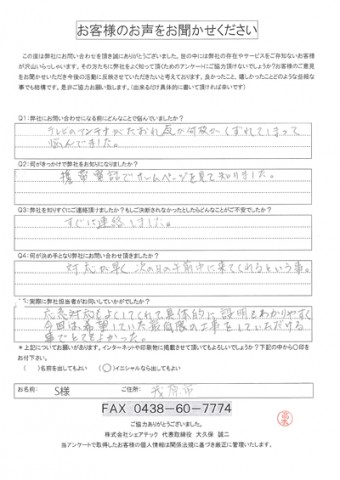 お客様のお声をお聞かせください
この度は弊社にお問い合わせを頂き誠にありがとうございました。世の中には弊社の存在やサービスをご存知ないお客様
が沢山いらっしゃいます。その方たちに弊社をよく知って頂くためのアンケートにご協力頂けないでしょうか?お客様のご意見
をお聞かせいただき今後の活動に反映させていただきたいと考えております。良かったこと、嬉しかったことどのような些細な
事でも結構です。是非ご協力お願い致します。(出来るだけ具体的に書いて頂ければ幸いです)
Q1:弊社をお問い合わせになる前にどんなことで悩んでいましたか?
テレビのアンテナがたおれ瓦が何枚かくずれてしまって
悩んでました。
Q2:何がきっかけで弊社をお知りになりましたか?
携帯電話でホームページを見て知りました。
Q3:弊社を知りすぐにご連絡頂けましたか?もしご決断されなかったとしたらどんなことがご不安でしたか?
すぐに連絡しました。
Q4:何が決め手となり弊社にお問い合わせ頂きましたか?
対応が早く次の日の午前中に来てくれるという事。
実際に弊社担当者がお伺いしていかがでしたか?
応急対応もよくしてくれて具体的に説明もわかりやすく
今回は希望していた最低限の工事をしていただける
事でとてもよかった。
*上記についてお願いがあります。インターネットや印刷物に掲載させて頂いてもよろしいでしょうか?下記の中から〇印を
お付下さい。
( )名前を出してもよい (〇)イニシャルなら出してもよい
お名前: S様 ご住所: 茂原市
FAX 0438-60-7774
ご協力ありがとうございました。
株式会社シェアテック 代表取締役 大久保 誠二
当アンケートで取得したお客様の個人情報は関係法規に基づき厳正に管理いたします。